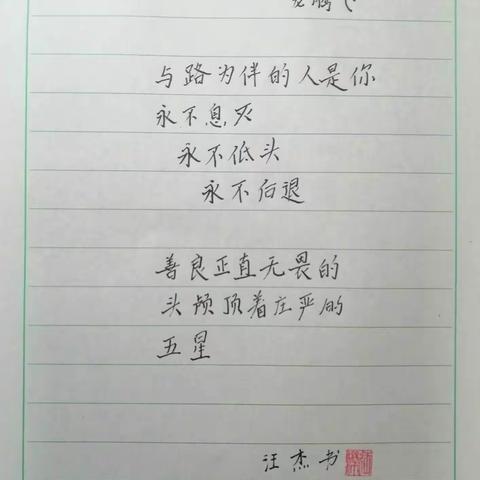 与路为伴的人是你
永不息灭
永不低头
永不后退
善良正直无畏的
头颅顶着庄严的
五星
汪杰书